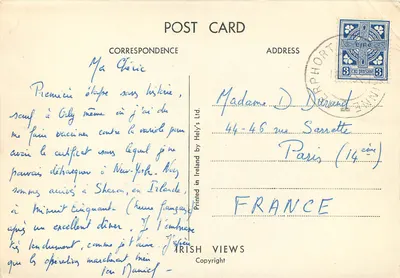 POST CARD
CORRESPONDENCE
ADDRESS
Ma Chérie
Première étape sans histoire,
sauf à Orly même où j'ai dû
me faire vacciner contre la variole pour
avoir le certificat sans lequel je ne
pouvais débarquer à New-York. Nous
sommes arrivés à Shannon, en Irlande,
à minuit cinquante (heure française)
après un excellent dîner. Je t'embrasse
très tendrement, comme je t'aime. J'espère
que les opérations marchent bien
Ton
Madame D. Durand
44-46 rue Sarrette
Paris (14ème)
FRANCE
Printed in Ireland by Hely's Ltd.
IRISH VIEWS
Copyright
3
3